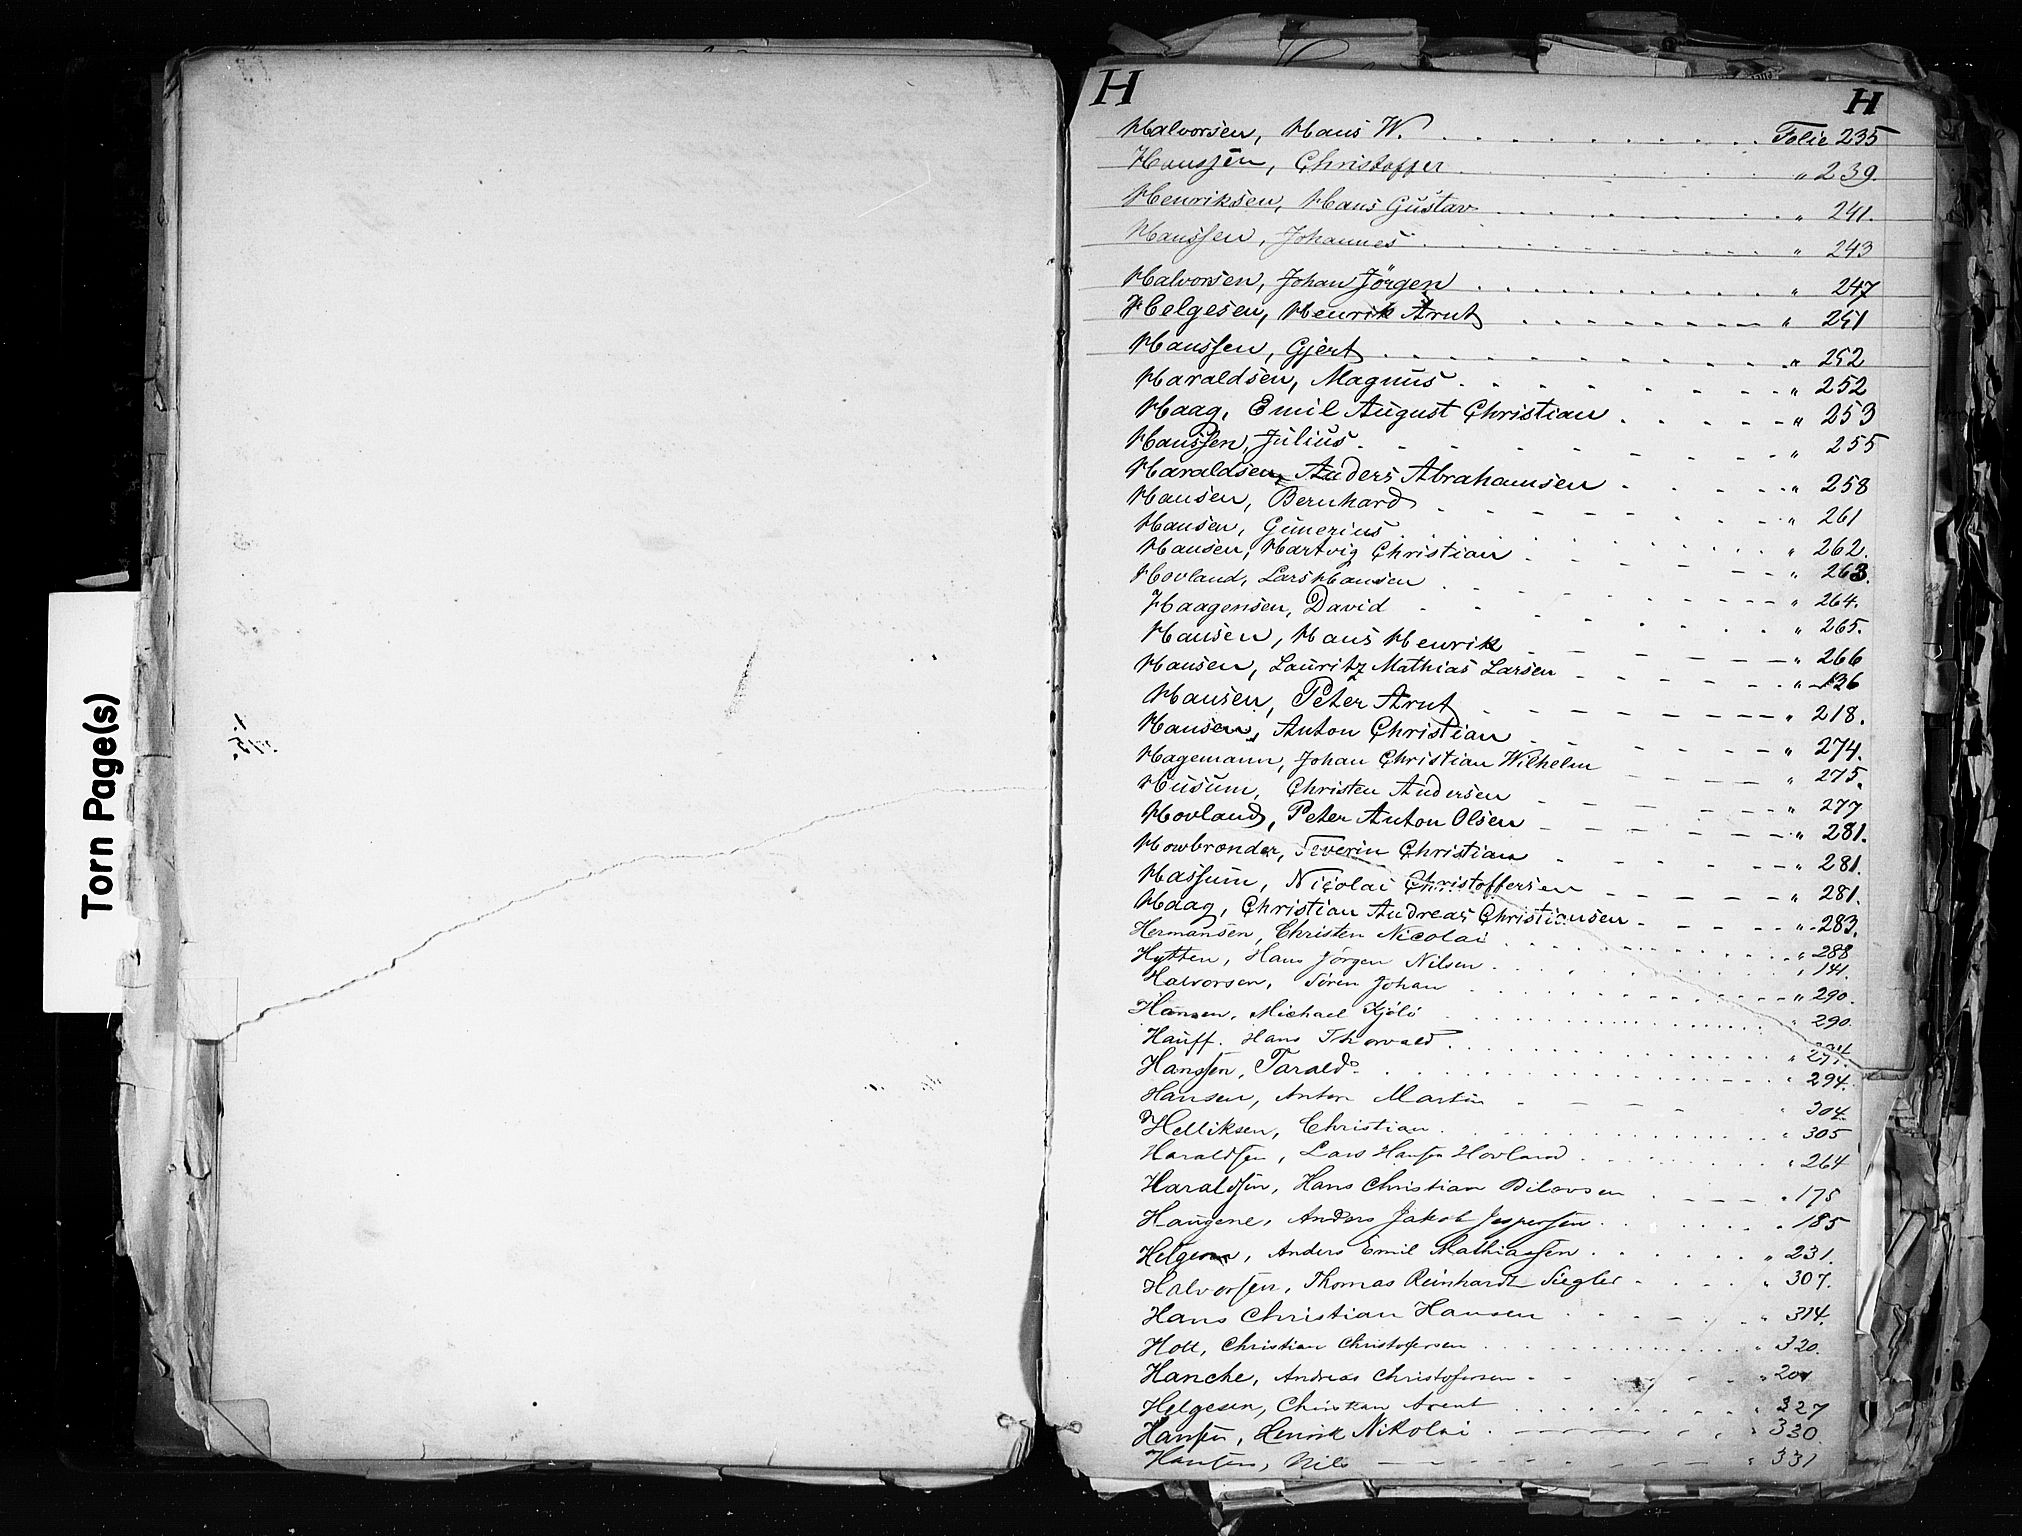 Torn Page(s)
H H
Halvorsen, Hans W. Folie 235
Hanssen, Christoffer " 239.
Henriksen, Hans Gustav " 241.
Hanssen, Johannes " 243
Halvorsen, Johan Jörgen " 247
Helgesen, Henrik Arnt " 251
Hanssen, Gjert " 252
Haraldsen, Magnus " 252
Haag, Emil August Christian " 253
Hanssen, Julius " 255
Haraldsen, Anders Abrahamsen " 258
Hansen, Bernhard " 261
Hansen, Gunerius " 262.
Hansen, Hartvig Christian " 263.
Hovland, Lars Hansen " 264.
Haagensen, David " 265.
Hansen, Hans Henrik " 266
Hansen, Lauritz Mathias Larsen " 136
Hansen, Peter Arnt " 218.
Hansen, Anton Christian " 274.
Hagemann, Johan Christian Wilhelm " 275.
Husum, Christen Andersen " 277
Hovland, Peter Anton Olsen " 281.
Howbrander, Severin Christian " 281.
Hassum, Nicolai Christoffersen " 281.
Haag, Christian Andreas Christiansen " 283.
Hermansen, Christen Nicolai " 288
Hytten, Hans Jörgen Nilsen " 141.
Halvorsen, Sören Johan " 290.
Hansen, Michael Kjölö " 290.
Hauff. Hans Thorvald "
Hanssen, Tarald " 294.
Hansen, Anton Martin " 304.
Helliksen, Christian " 305
Haraldsen, Lars Hansen Hovland " 264
Haraldsen, Hans Christian " 175
Haugene, Anders Jakob Jespersen " 185
Helgesen, Anders Emil Mathiassen " 231.
Halvorsen, Thomas Reinhardt Siegler " 307.
Hans Christian Hansen " 314.
Holt, Christian Christofersen " 320.
Hanche, Andreas Christofersen " 201
Helgesen, Christian Arent " 327
Hansen, Henrik Nikolai " 330
Hansen, Nils " 331